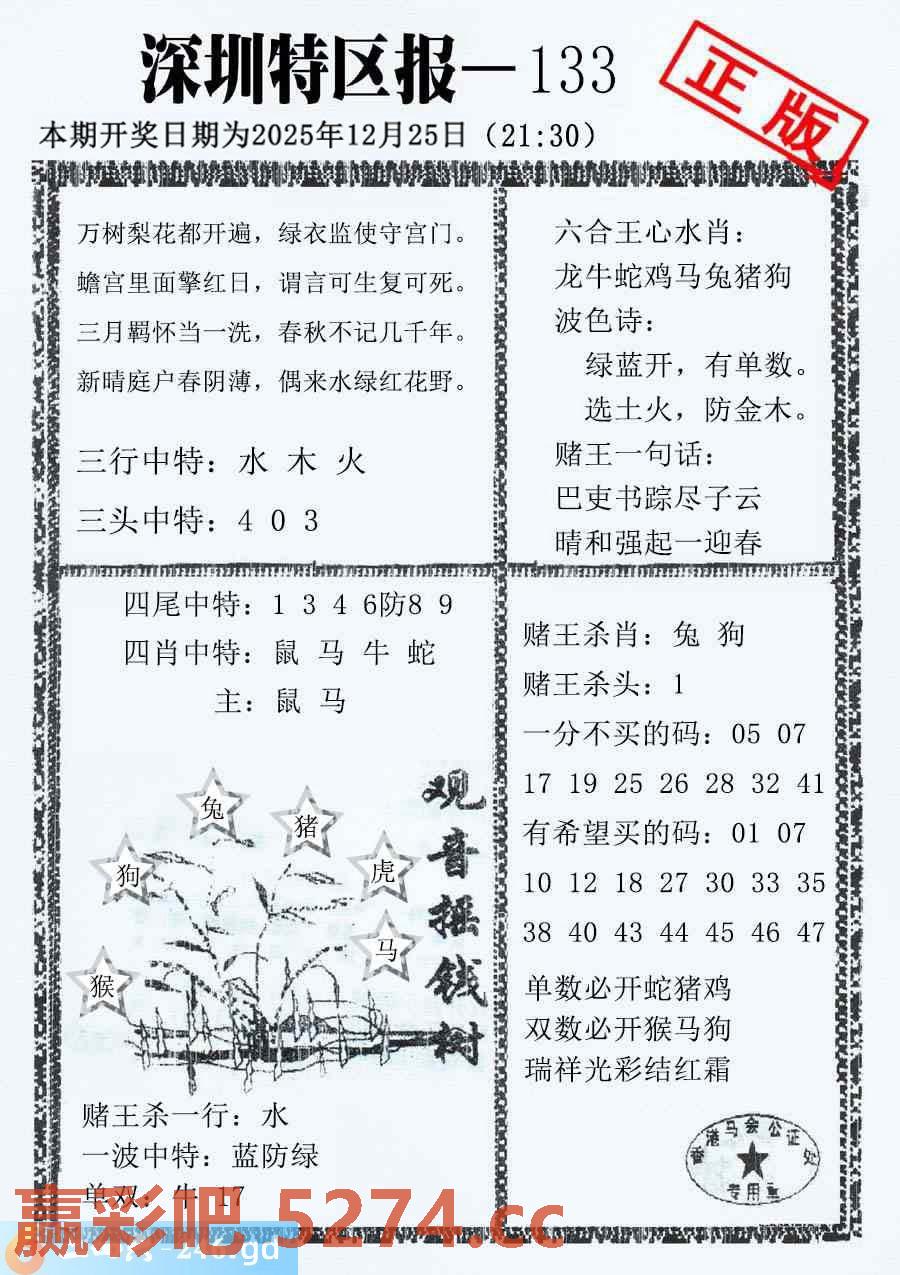 深圳特区报—133
正版
本期开奖日期为2025年12月25日（21:30）
万树梨花都开遍，绿衣监使守宫门。
蟾宫里面擎红日，谓言可生复可死。
三月羁怀当一洗，春秋不记几千年。
新晴庭户春阴薄，偶来水绿红花野。
三行中特：水 木 火
三头中特：4 0 3
六合王心水肖：
龙牛蛇鸡马兔猪狗
波色诗：
绿蓝开，有单数。
选土火，防金木。
赌王一句话：
巴吏书踪尽子云
晴和强起一迎春
四尾中特：1 3 4 6防8 9
四肖中特：鼠 马 牛 蛇
主：鼠 马
观音摇钱树
兔
猪
狗
虎
马
猴
赌王杀一行：水
一波中特：蓝防绿
单双：牛 17
赌王杀肖：兔 狗
赌王杀头：1
一分不买的码：05 07
17 19 25 26 28 32 41
有希望买的码：01 07
10 12 18 27 30 33 35
38 40 43 44 45 46 47
单数必开蛇猪鸡
双数必开猴马狗
瑞祥光彩结红霜
香港马会公证处
专用章
赢彩吧 5274.cc